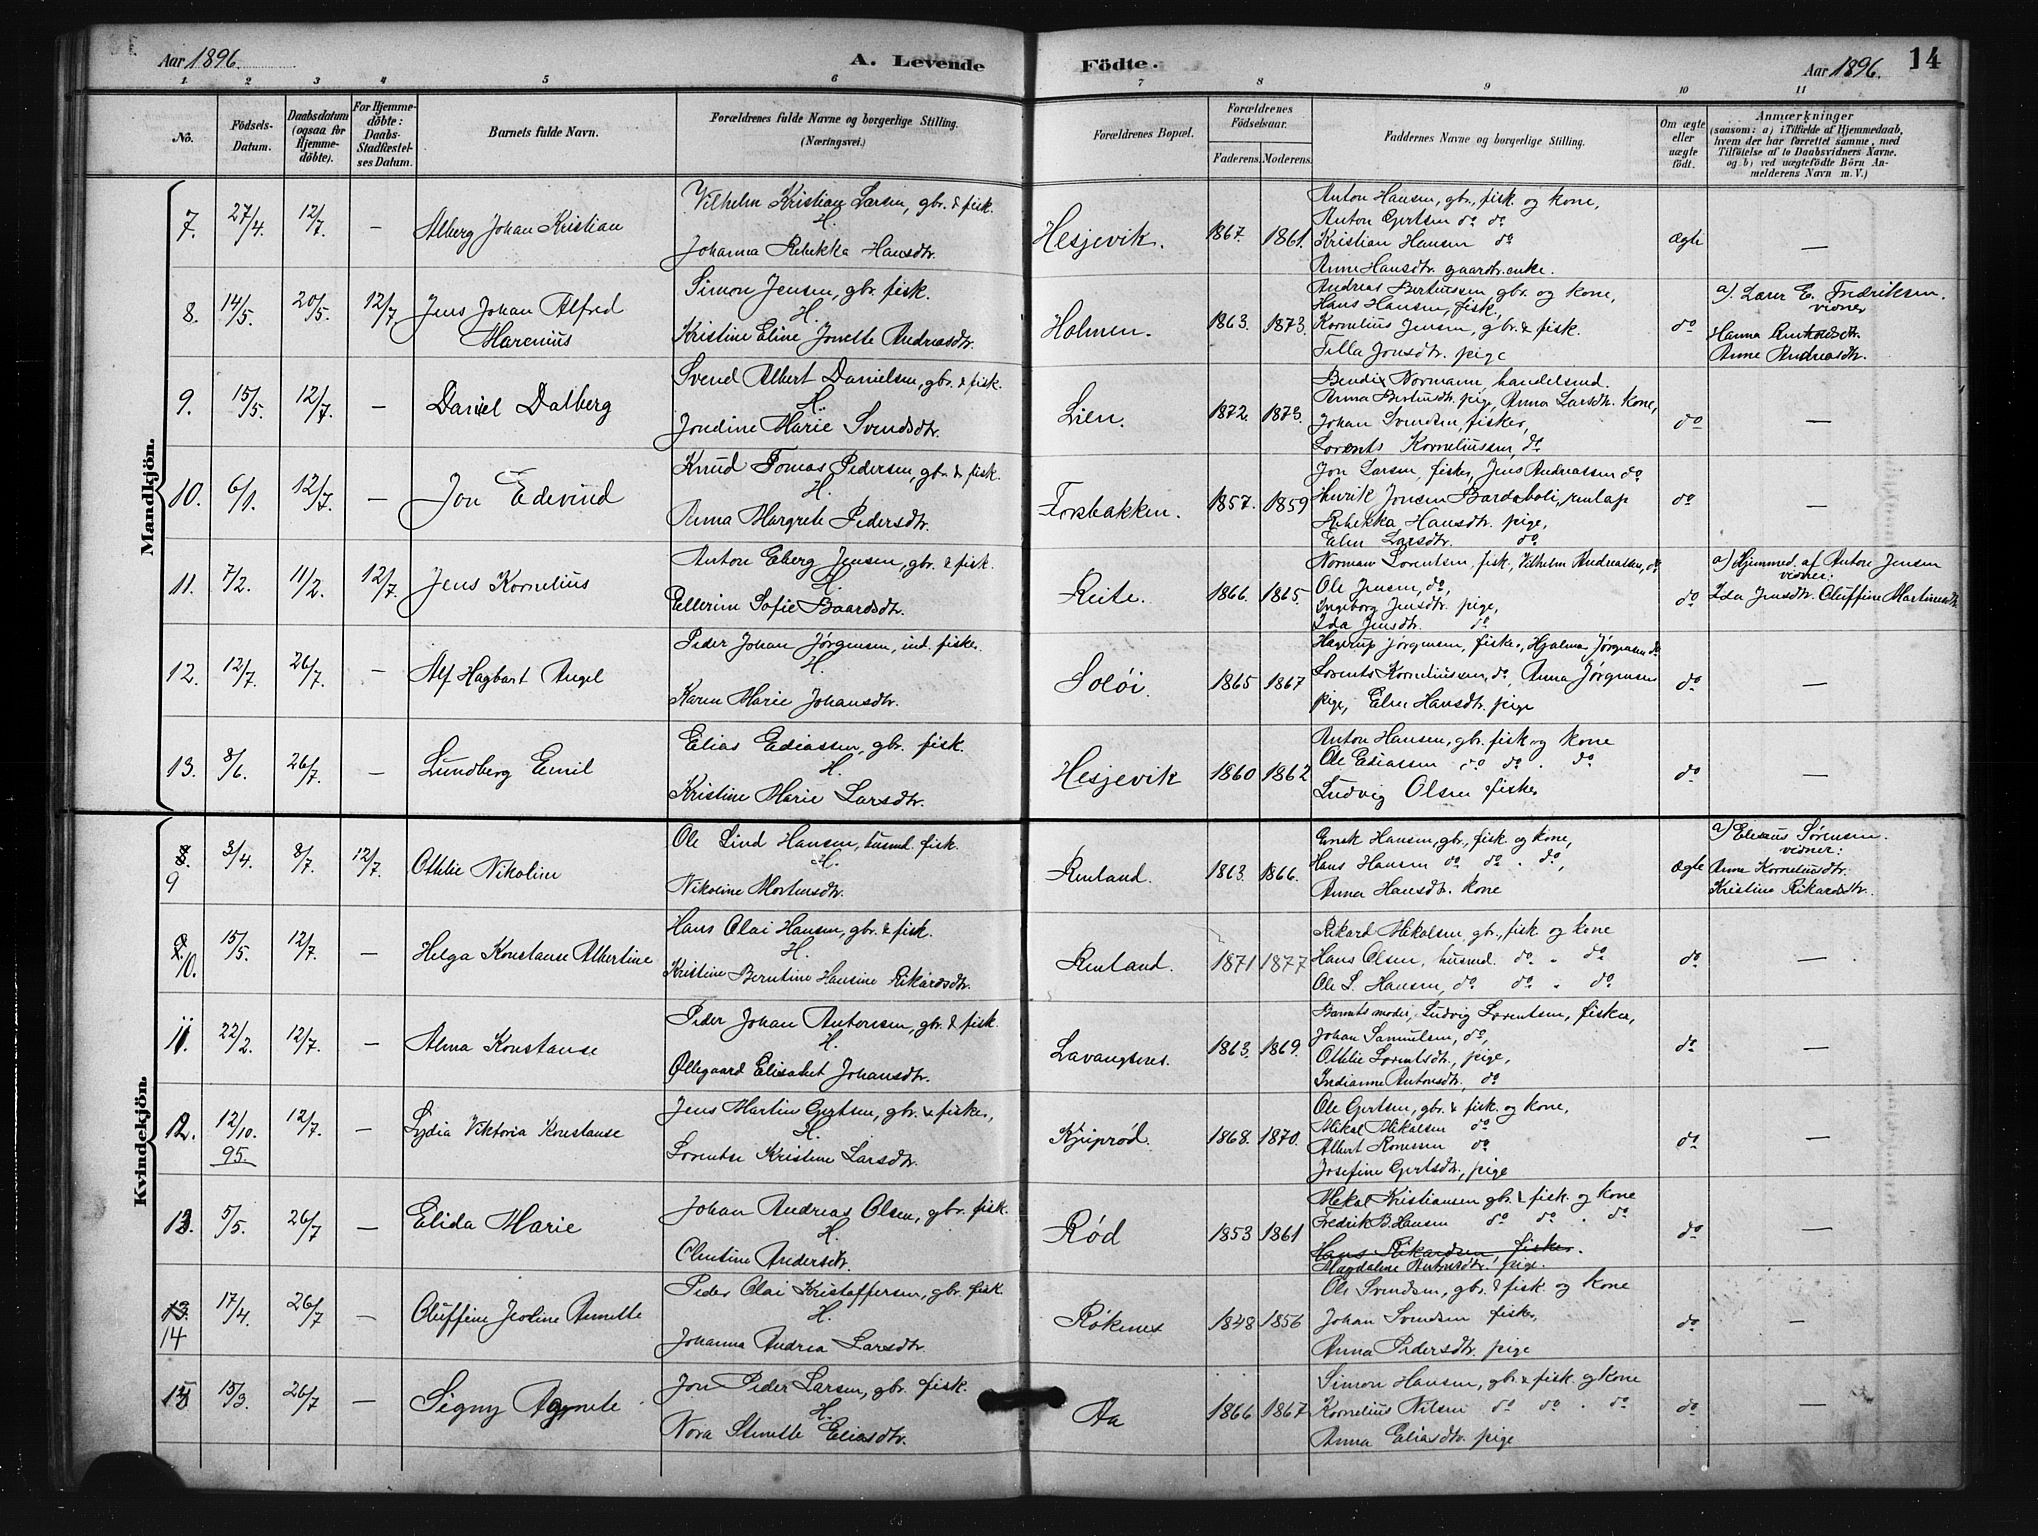 Aar 1896. A. Levende Födte. Aar 1896. 14
1 2 3 4 5 6 7 8 9 10 11
No. Födsels-Datum. Daabsdatum (ogsaa for Hjemme-döbte). For Hjemme-döbte: Daabs-Stadfæstel-ses Datum. Barnets fulde Navn. Forældrenes fulde Navne og borgerlige Stilling. (Næringsvei.) Forældrenes Bopæl. Forældrenes Födselsaar. Faderens. Moderens. Faddernes Navne og borgerlige Stilling. Om ægte eller uægte födt. Anmærkninger (saasom: a) i Tilfælde af Hjemmedaab, hvem der har forrettet samme, med Tilföielse af to Daabsvidners Navne, og b) ved uægtefödte Börn An-melderens Navn m. V.)
Mandkjön.
7. 27/4. 12/7. — Alberg Johan Kristian
Vilhelm Kristian Larsen, gbr. & fisk.
H.
Johanna Rebekka Hansdtr.
Hesjevik. 1867. 1861.
Anton Hansen, gbr, fisk. og kone,
Anton Gertsen do do
Kristian Hansen do
Anne Hansdtr. gaardbr.enke.
Ægte —
8. 14/5. 20/5. 12/7 Jens Johan Alfred
Harenius
Simon Jensen, gbr. fisk.
H.
Kristine Eline Jonette Andreasdtr.
Holmen. 1863. 1873.
Andreas Bertiussen gbr. og kone,
Hans Hansen, fisk.
Kornelius Jensen, gbr. & fisk.
Tilla Jonsdtr. pige
do
a). Lærer E. Fredriksen.
vidner
Hanna
Anne Andreasdtr.
9. 15/5. 12/7. — Daniel Dalberg
Svend Albert Danielsen, gbr. & fisk.
H.
Jondine Marie Svendsdtr.
Lien. 1872. 1873.
Bendix Normann, handelsmd.
Anna Bertiusdtr. pig, Anna Larsdtr. kone,
Johan Svendsen, fisker,
Lorents Korneliussen, do
do —
10. 6/1. 12/7. — Jon Edevind
Knud Tomas Pedersen, gbr. & fisk.
H.
Anna Margrete Pedersdtr.
Forsbakken. 1857. 1859
Jon Larsen, fisker, Jens Andreassen do
Henrik Jonsen Bardeboli, renlap
Rebekka Hansdtr. pige,
Elen Larsdtr. do
do —
11. 7/2. 11/2. 12/7. Jens Kornelius
Anton Eberg Jensen, gbr. & fisk.
H.
Ellerine Sofie Baardsdtr.
Reite. 1866. 1865.
Norman Lorentsen, fisk., Vilhelm Andreassen, do
Ole Jensen, do,
Ingeborg Jensdtr. pige,
Ida Jensdtr. do
do
a) Hjemmed. af Anton Jensen
vidner:
Ida Jensdtr. Oluffine Martinusdtr.
12. 12/7. 26/7. — Alf Hagbart Angel
Peder Johan Jørgensen, ind. fisker.
H.
Karen Marie Johansdtr.
Soløi. 1865 1867
Hagerup Jørgensen, fisker, Hjalmar Jørgensen do
Lorents Korneliussen, do, Anna Jørgensen
pige, Elen Hansdtr. pige
do —
13. 8/6. 26/7. — Lundberg Emil
Elias Ediassen, gbr. fisk.
H.
Kristine Marie Larsdtr.
Hesjevik 1860 1862
Anton Hansen, gbr. fisk. og kone
Ole Ediassen do do . do
Ludvig Olsen fisker
do —
Kvindekjön.
8. 9 3/4. 8/7. 12/7. Ottilie Nikoline
Ole Lind Hansen, husmd. fisk.
H.
Nikoline Mortensdtr.
Renland. 1863. 1866.
Enok Hansen, gbr., fisk. og kone,
Hans Hansen do do . do,
Anna Hansdtr. kone
Ægte
a) Eliseus Sørensen.
vidner:
Anne Korneliusdtr.
Kristine Rikardsdtr.
10. 15/5. 12/7. — Helga Konstanse Albertine
Hans Olai Hansen, gbr. & fisk.
H.
Kristine Berntine Hansine Rikardsdtr.
Renland. 1871 1877
Rikard Mikalsen gbr., fisk. og kone
Hans Olsen, husmd. do . do
Ole L. Hansen, do do . do
do —
11. 22/2. 12/7. — Alma Konstanse
Peder Johan Antonsen, gbr. & fisk.
H.
Ollegaard Elisabet Johansdtr.
Lavangsnes. 1863. 1869.
Barnets moder, Ludvig Lorentsen, fisker,
Johan Samuelsen, do,
Ottilie Lorentsdtr., pige,
Indianne Antonsdtr. do
do —
12. 12/10. 95. 12/7. — Lydia Viktoria Konstanse
Jens Martin Gertsen, gbr. & fisker,
H.
Lorentse Kristine Larsdtr.
Kjuprød. 1868. 1870.
Ole Gertsen, gbr. & fisk. og kone,
Mikal Mikalsen do
Albert do
Josefine Gertsdtr., pige
do —
13. 5/5. 26/7 — Elida Marie
Johan Andreas Olsen, gbr. fisk.
H.
Clentine Andersdtr.
Rød 1853 1861
Mikal Kristiansen gbr. & fisk. og kone
Fredrik B. Hansen do do . do
Hans Rikardsen, fisker.
Magdaline Antonsdtr. pige.
do —
13. 14 17/4. 26/7 — Oluffine Jentine Annette
Peder Olai Kristoffersen, gbr. fisk
H.
Johanna Andrea Larsdtr.
Røkenes 1848 1856
Ole Svendsen, gbr. & fisk. og kone
Johan Svendsen fisker,
Anna Pedersdtr. pige
do —
15/3. 26/7 — Signy Agnete
Jon Peder Larsen, gbr. fisk.
H.
Nora Stenette Eliasdtr.
Aa 1866 1867
Simon Hansen, gbr. & fisk. og kone
Kornelius Nilsen do do . do
Anna Eliasdtr. pige
do —